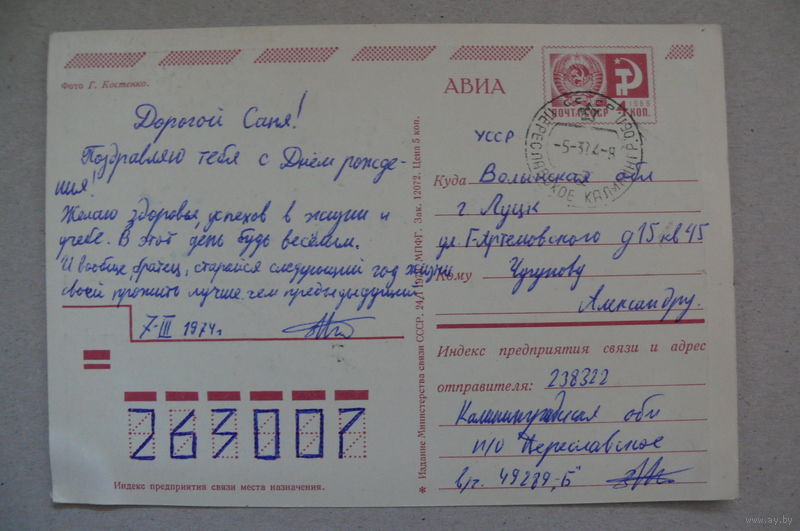 Фото Г. Костенко.
Дорогой Саня!
Поздравляю тебя с Днём рожде-
ния!
Желаю здоровья, успехов в жизни и
учебе. В этот день будь веселым.
И вообще, братец, старайся следующий год жизни
своей прожить лучше, чем предыдущий
7-III 1974 г
263007
Индекс предприятия связи места назначения.
* Издание Министерства связи СССР. МПФГ. Зак. 12072. Цена 5 коп.
АВИА
ПОЧТА СССР 4 КОП.
1966
ПЕРЕСЛАВСКОЕ КАЛИНИНГР. ОБЛ
-5-374-9
УССР
Куда Волынская обл
г. Луцк
ул. Г-Артемовского д 15 кв 45
Кому
Александру.
Индекс предприятия связи и адрес
отправителя: 238322
Калининградская обл
п/о Переславское
в/ч. 49289-„Б"
www.ay.by